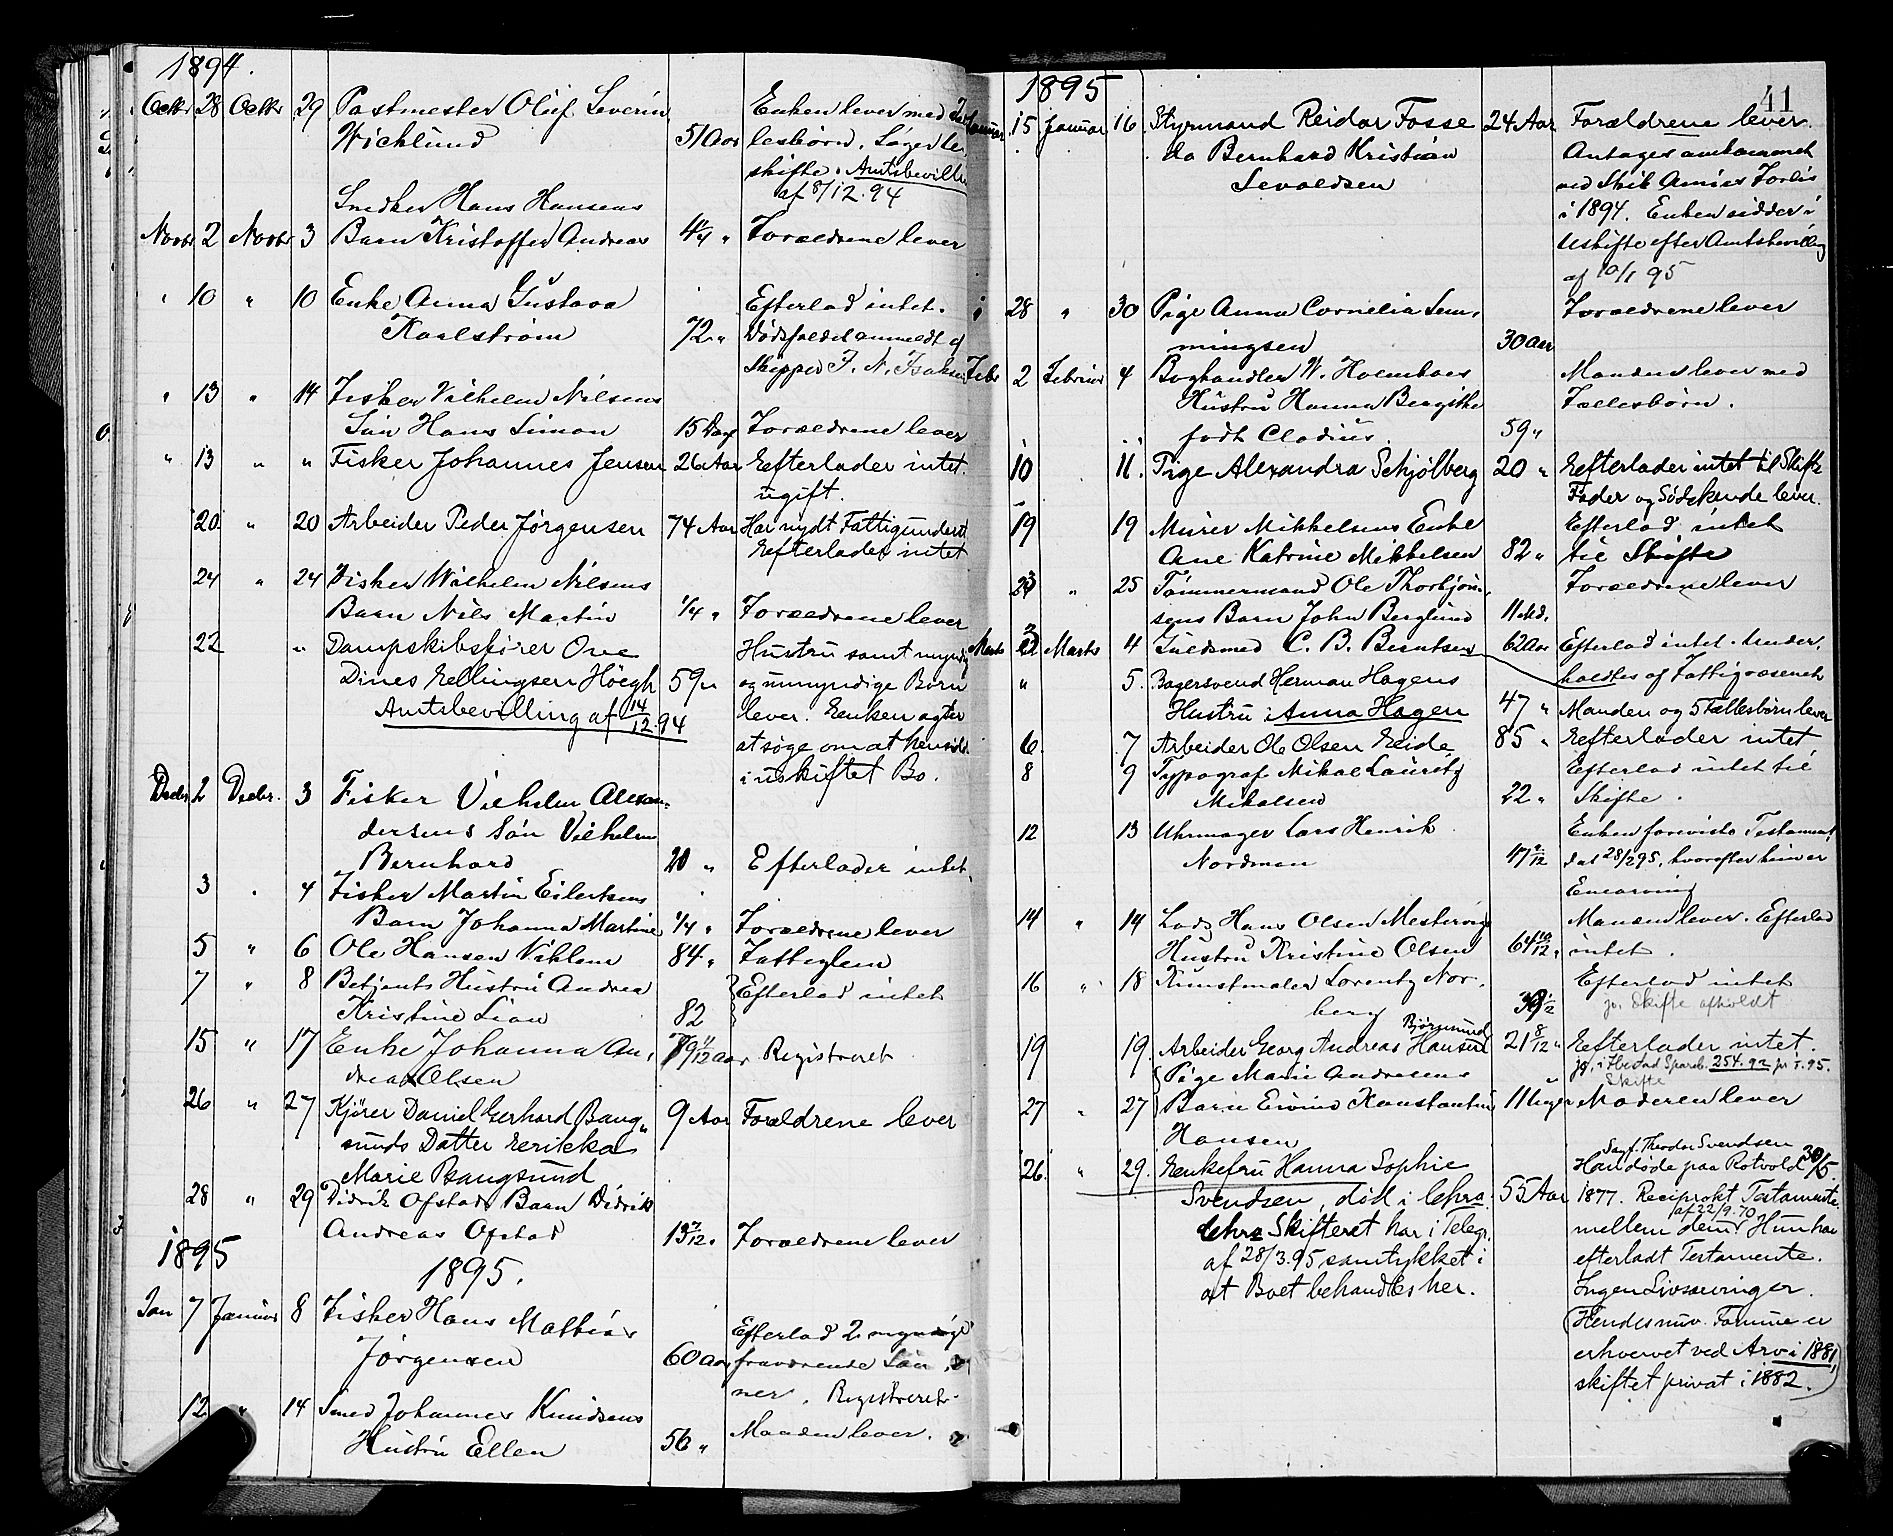 1894.
Octbr 28 Octbr 29 Postmester Oluf Severin Enken lever med
Wicklund 51 Aar lesbørn. Søger
skifte. Amtsbevill
af 8/12.94
Snedker Hans Hansens
Novbr 2 Novbr 3 Barn Kristoffer Andreas " Forældrene lever
" 10 " 10 Enke Anna Gustava Efterlod intet.
Karlstrøm 72 " Dødsfaldet anmeldt af
Skipper F. N. Isaksen
" 13 " 14 Fisker Vilhelm Nilsens
Søn Hans Simon 15 Dage Forældrene lever
" 13 " " Fisker Johannes Jensen 26 Aar Efterlader intet.
ugift.
20 " 20 Arbeider Peder Jørgensen 74 Aar Har nydt Fattigunderst
Efterlader intet
24 " 24 Fisker Wilhelm Nilsens
Barn Nils Martin 1/4 " Forældrene lever
22 " Dampskibsfører Ove Hustru samt myndig
Dines Ellingsen Höegh 59 " og umyndige Børn
Amtsbevilling af 14/12.94 lever. Enken agter
at søge om at hensidde
i uskiftet Bo.
Decbr 2 Decbr. 3 Fisker Vilhelm Alexan-
dersens Søn Vilhelm
Bernhard 20 " Efterlader intet
3 " 4 Fisker Martin Eilertsens
Barn Johanna Martine 1/4 " Forældrene lever
5 " 6 Ole Hansen 84 " Fattiglem
7 " 8 Betjents Hustru Andrea Efterlod intet
Kristine Lian 82
15 " 17 Enke Johanna An- 79 11/12 Aar Registreret
drea Olsen
26 " 27 Kjører Daniel Gerhard Bang- 9 Aar Forældrene lever
sunds Datter Erikka
Marie Bangsund
28 " 29 Didrik Ofstads Barn Didrik
Andreas Ofstad 13 7/12 " Forældrene lever
1895
1895.
Jan 7 Januar 8 Fisker Hans Mathias Efterlod 2 myndige
Jørgensen 60 Aar fraværende Søn-
ner. Registreret.
12 " 14 Smed Johannes Knudsens
Hustru Ellen 56 " Manden lever.
41
1895
Januar 15 Januar 16 Styrmand Reidar Fosse 24 Aar Forældrene lever.
do Bernhard Kristian Antages omkommet
Sevaldsen ved Skib Forlis
i 1894. Enken sidder i
Uskifte efter Amtsbevilling
af 10/1 95
" 28 " 30 Pige Anna Cornelia Lem- Forældrene lever
mingsen 30 Aar
Febr 2 Februar 4 Boghandler W. Holmboes Manden lever med
Hustru Hanna Bergithe Fællesbørn.
født Clodius. 59 "
10 11. Pige Alexandra Schjølberg 20 " Efterlader intet til Skifte
Fader og Sødskende lever.
19 19 Murer Mikkelsens Enke Efterlod intet
Ane Katrine Mikkelsen 82 " til Skifte
23 " 25 Tømmermand Ole Thorbjørn- Forældrene lever
sens Barn John Berglund 11 Md.
Marts 2 Marts 4 Guldsmed C. B. Berntsen 62 Aar Efterlod intet. Under-
holdtes af Fattigvæsenet
" 5. Bagersvend Herman Hagens
Hustru Anna Hagen 47 " Manden og 5 Fællesbørn lever
6. 7 Arbeider Ole Olsen Eide 85 " Efterlader intet
8 9 Typograf Mikal Lauritz Efterlod intet til
Mikalsen 22 " Skifte.
12 13 Uhrmager Lars Henrik Enken foreviste Testament
Nordmen 47 /12 dat 28/2 95, hvorefter hun er
Enearving
14 " 14 Lods Hans Olsen Hustru Kristine Olsen 64 10/12 " Manden lever. Efterlod
intet.
16 " 18 Kunstmaler Lorentz Nor- Efterlod intet
berg jo. Skifte afholdt
Bjørnsund
19 19. Arbeider Georg Andreas Hansen 21 8/12 " Efterlader intet.
jo, i Spareb. 254.92 pr 1.95.
Skifte
Pige Marie Andresens
27 " 27 Barn Eivind Konstantin 11 Uger Moderen lever
Hansen
26. " 29. Enkefru Hanna Sophie Sagf. Theodor Svendsen
Svendsen, død i Chra. 55 Aar Han døde paa Rotvold 30/5
Chra Skifteret har i Telegr. 1877. Reciprokt Testamente
af 28/3.95 samtykket i af 22/9.70
at Boet behandles her. mellem dem. Hun har
efterladt Testamente.
Ingen Livsarvinger.
(Hendes nuv. Formue er
erhvervet ved Arv i 1881,
skiftet privat i 1882.)